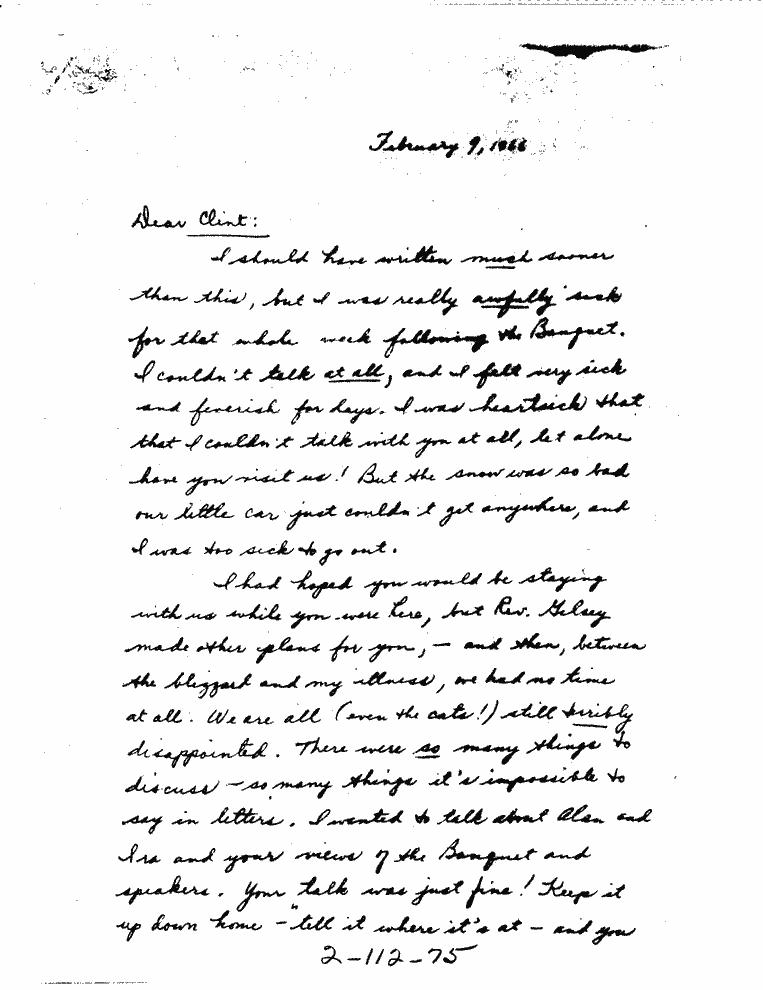 February 9, 1966
Dear Clint:
I should have written much sooner
than this, but I was really awfully sick
for that whole week following the Banquet.
I couldn't talk at all, and I felt very sick
and feverish for days. I was heartsick that
that I couldn't talk with you at all, let alone
have you visit us! But the snow was so bad
our little car just couldn't get anywhere, and
I was too sick to go out.
I had hoped you would be staying
with us while you were here, but Rev. Gelsey
made other plans for you, — and then, between
the blizzard and my illness, we had no time
at all. We are all (even the cats!) still terribly
disappointed. There were so many things to
discuss — so many things it's impossible to
say in letters. I wanted to talk about Alan and
Ira and your views of the Banquet and
speakers. Your talk was just fine! Keep it
up down home — "tell it where it's at — and you
2-112-75